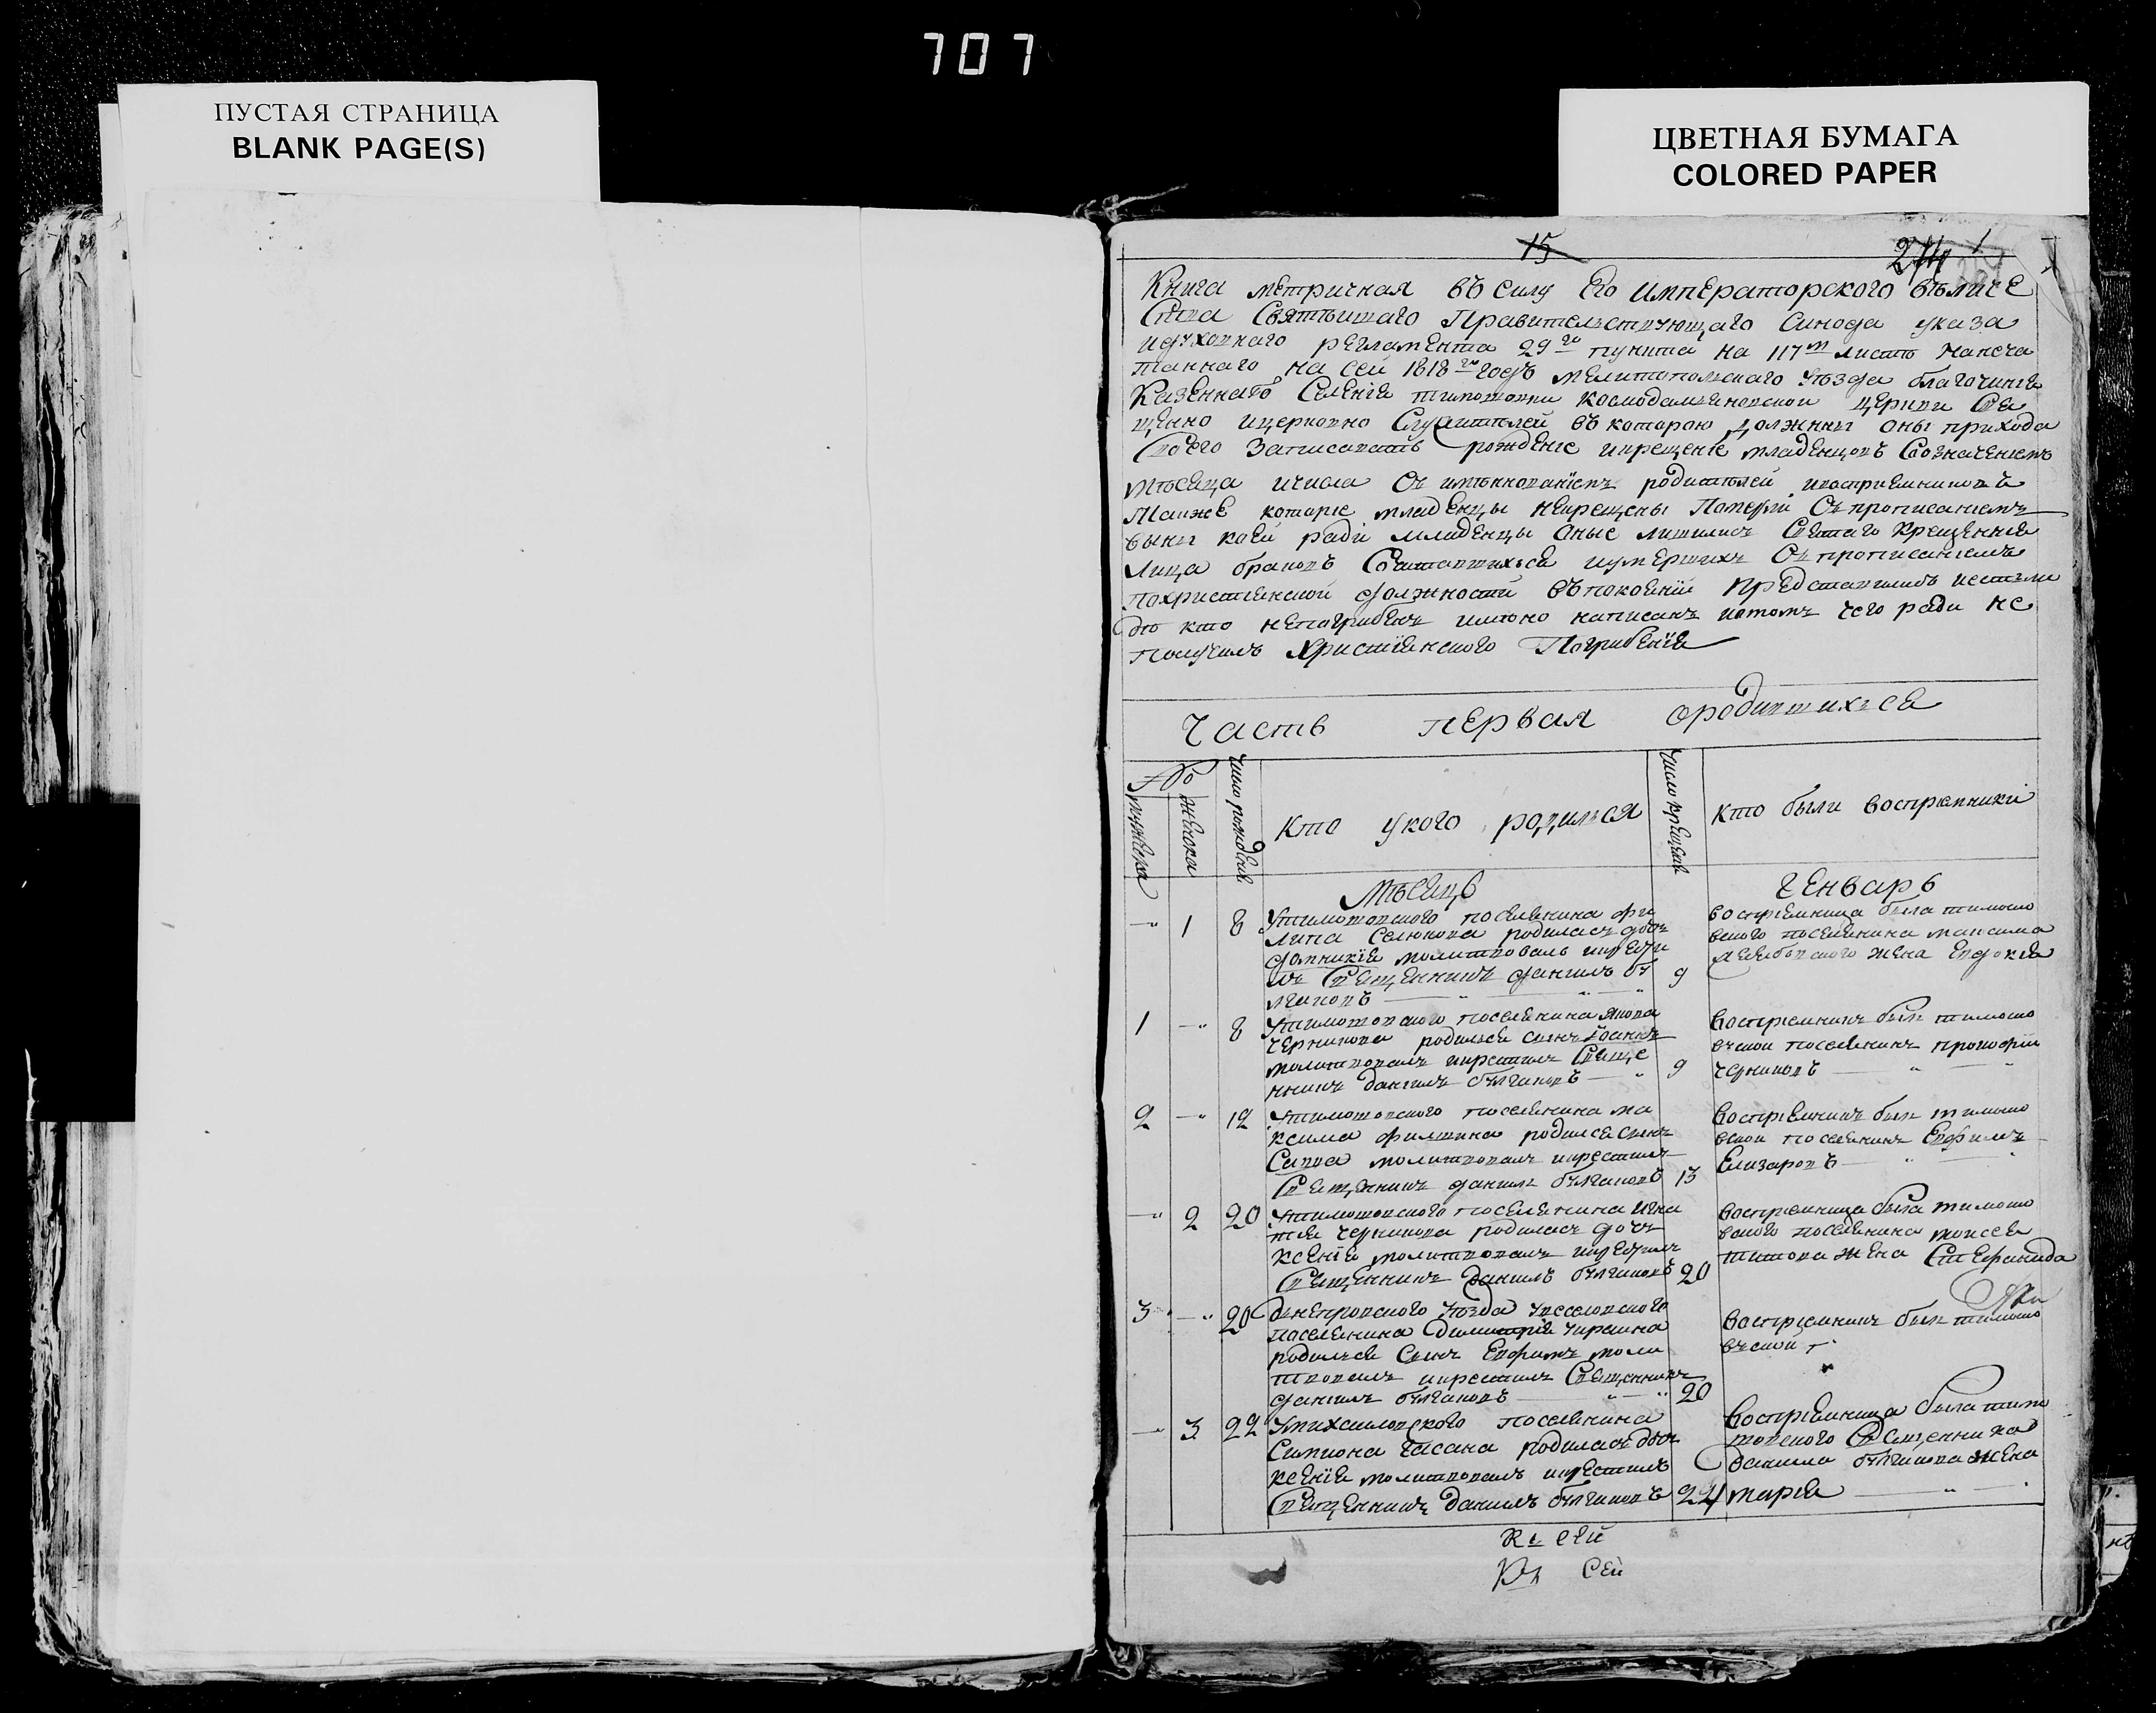 707
ПУСТАЯ СТРАНИЦА
BLANK PAGE(S)
ЦВЕТНАЯ БУМАГА
COLORED PAPER
15
274
Книга метричная въ силу Его императорского вѣличе
ства Святѣишаго Правителствующаго Синода указа
идуховнаго регламента 29го пункта на 117м листѣ напеча
таннаго на сей 1818го годъ мелитопольского уѣзда благочиние
Казеннаго Селения тимошовки космодамиеновской церкви Свя
щенно ицерковно Служителей въ которою должнны оны прихода
своего записовать рождение икрещение младенцовъ Созначениемъ
мѣсеца ичисла Съ имѣнованиемъ родителей ивосприемниковъ
Также которие младенцы некрещены Померли Съпрописаниемъ
вины коей ради младенцы оные лишились Светаго Крещения
Лица браковъ Сочетавшихъся иумершихъ Съпрописаниемъ
похристиенской должности въ покоении представились иестли
кто непогрибенъ имѣно написанъ потомъ чего ради не
получилъ Христиенского Погрибения
Часть первая ородившихъсе
№
мужеска
женска
число рождения
Кто укого родился
число крещения
кто были восприемники
Мѣсецъ
Генварь
" 1 8 Утимошовского поселенина фи
липа Селюкова родилась дочь
домникие молитвовалъ икрести
лъ Свещенникъ данилъ бу
лгаковъ 9
восприемница была тимошо
вского поселенина максима
жена Евдокия
1 " 8 Утимошовского поселенина якова
черникова родился сынъ Иоаннъ
молитвовалъ икрестилъ Свеще
нникъ данилъ булгаковъ 9
Восприемникъ былъ тимошо
вской поселенинъ прокофий
черниковъ
2 " 12 Утимошовского поселенина ма
ксима филшина родился сынъ
Савва молитвовалъ икрестилъ
Свещенникъ данилъ булгаковъ 13
Восприемникъ былъ тимошо
вской поселенинъ Ефимъ
Елизаровъ
" 2 20 Утимошовского поселенина игна
тия черникова родилась дочь
Ксения молитвовалъ икрестилъ
Свещенникъ данилъ булгаковъ 20
Восприемница была тимошо
вского поселенина моисея
титова жена Стефанида
3 " 20 днепровского уѣзда
поселенина Димитрия
родился Сынъ Ефимъ моли
твовалъ икрестилъ Свещенникъ
данилъ булгаковъ 20
Восприемникъ былъ тимошо
вской
" 3 22 Умихаиловского поселенина
Симиона Гасана родилась дочь
Ксения молитвовалъ икрестилъ
Свещенникъ данилъ булгаковъ 22
Восприемница была тим
шовского Свещенника
данила булгакова жена
мария
Къ сей
Къ сей